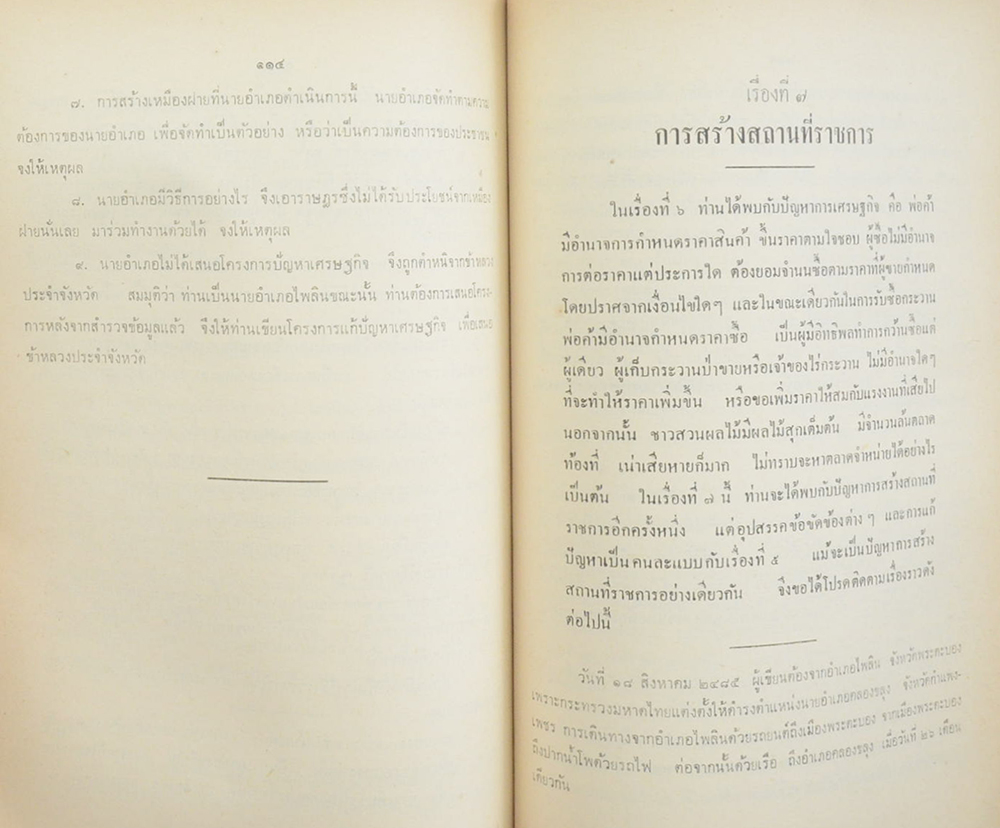 ๑๑๔
๗. การสร้างเหมืองฝายที่นายอำเภอดำเนินการนี้ นายอำเภอจัดทำตามความ
ต้องการของนายอำเภอ เพื่อจัดทำเป็นตัวอย่าง หรือว่าเป็นความต้องการของประชาชน
จงให้เหตุผล
๘. นายอำเภอมีวิธีการอย่างไร จึงเอาราษฎรซึ่งไม่ได้รับประโยชน์จากเหมือง
ฝายนั้นเลย มาร่วมทำงานด้วยได้ จงให้เหตุผล
๙. นายอำเภอไม่ได้เสนอโครงการปัญหาเศรษฐกิจ จึงถูกตำหนิจากข้าหลวง
ประจำจังหวัด สมมุติว่า ท่านเป็นนายอำเภอไพลินขณะนั้น ท่านต้องการเสนอโครง-
การหลังจากสำรวจข้อมูลแล้ว จึงให้ท่านเขียนโครงการแก้ปัญหาเศรษฐกิจ เพื่อเสนอ
ข้าหลวงประจำจังหวัด
เรื่องที่ ๗
การสร้างสถานที่ราชการ
ในเรื่องที่ ๖ ท่านได้พบกับปัญหาการเศรษฐกิจ คือ พ่อค้า
มีอำนาจการกำหนดราคาสินค้า ขึ้นราคาตามใจชอบ ผู้ซื้อไม่มีอำนาจ
การต่อราคาแต่ประการใด ต้องยอมจำนนซื้อตามราคาที่ผู้ขายกำหนด
โดยปราศจากเงื่อนไขใดๆ และในขณะเดียวกันในการรับซื้อกระวาน
พ่อค้ามีอำนาจกำหนดราคาซื้อ เป็นผู้มีอิทธิพลทำการกว้านซื้อแต่
ผู้เดียว ผู้เก็บกระวานป่าขายหรือเจ้าของไร่กระวาน ไม่มีอำนาจใดๆ
ที่จะทำให้ราคาเพิ่มขึ้น หรือขอเพิ่มราคาให้สมกับแรงงานที่เสียไป
นอกจากนั้น ชาวสวนผลไม้มีผลไม้สุกเต็มต้น มีจำนวนล้นตลาด
ท้องที่ เน่าเสียหายก็มาก ไม่ทราบจะหาตลาดจำหน่ายได้อย่างไร
เป็นต้น ในเรื่องที่ ๗ นี้ ท่านจะได้พบกับปัญหาการสร้างสถานที่
ราชการอีกครั้งหนึ่ง แต่อุปสรรคข้อขัดข้องต่างๆ และการแก้
ปัญหาเป็นคนละแบบกับเรื่องที่ ๕ แม้จะเป็นปัญหาการสร้าง
สถานที่ราชการอย่างเดียวกัน จึงขอได้โปรดติดตามเรื่องราวดัง
ต่อไปนี้
วันที่ ๑๘ สิงหาคม ๒๔๘๕ ผู้เขียนต้องจากอำเภอไพลิน จังหวัดพระตะบอง
เพราะกระทรวงมหาดไทยแต่งตั้งให้ดำรงตำแหน่งนายอำเภอคลองขลุง จังหวัดกำแพง-
เพชร การเดินทางจากอำเภอไพลินด้วยรถยนต์ถึงเมืองพระตะบอง จากเมืองพระตะบอง
ถึงปากน้ำโพด้วยรถไฟ ต่อจากนั้นด้วยเรือ ถึงอำเภอคลองขลุง เมื่อวันที่ ๒๖ เดือน
เดียวกัน